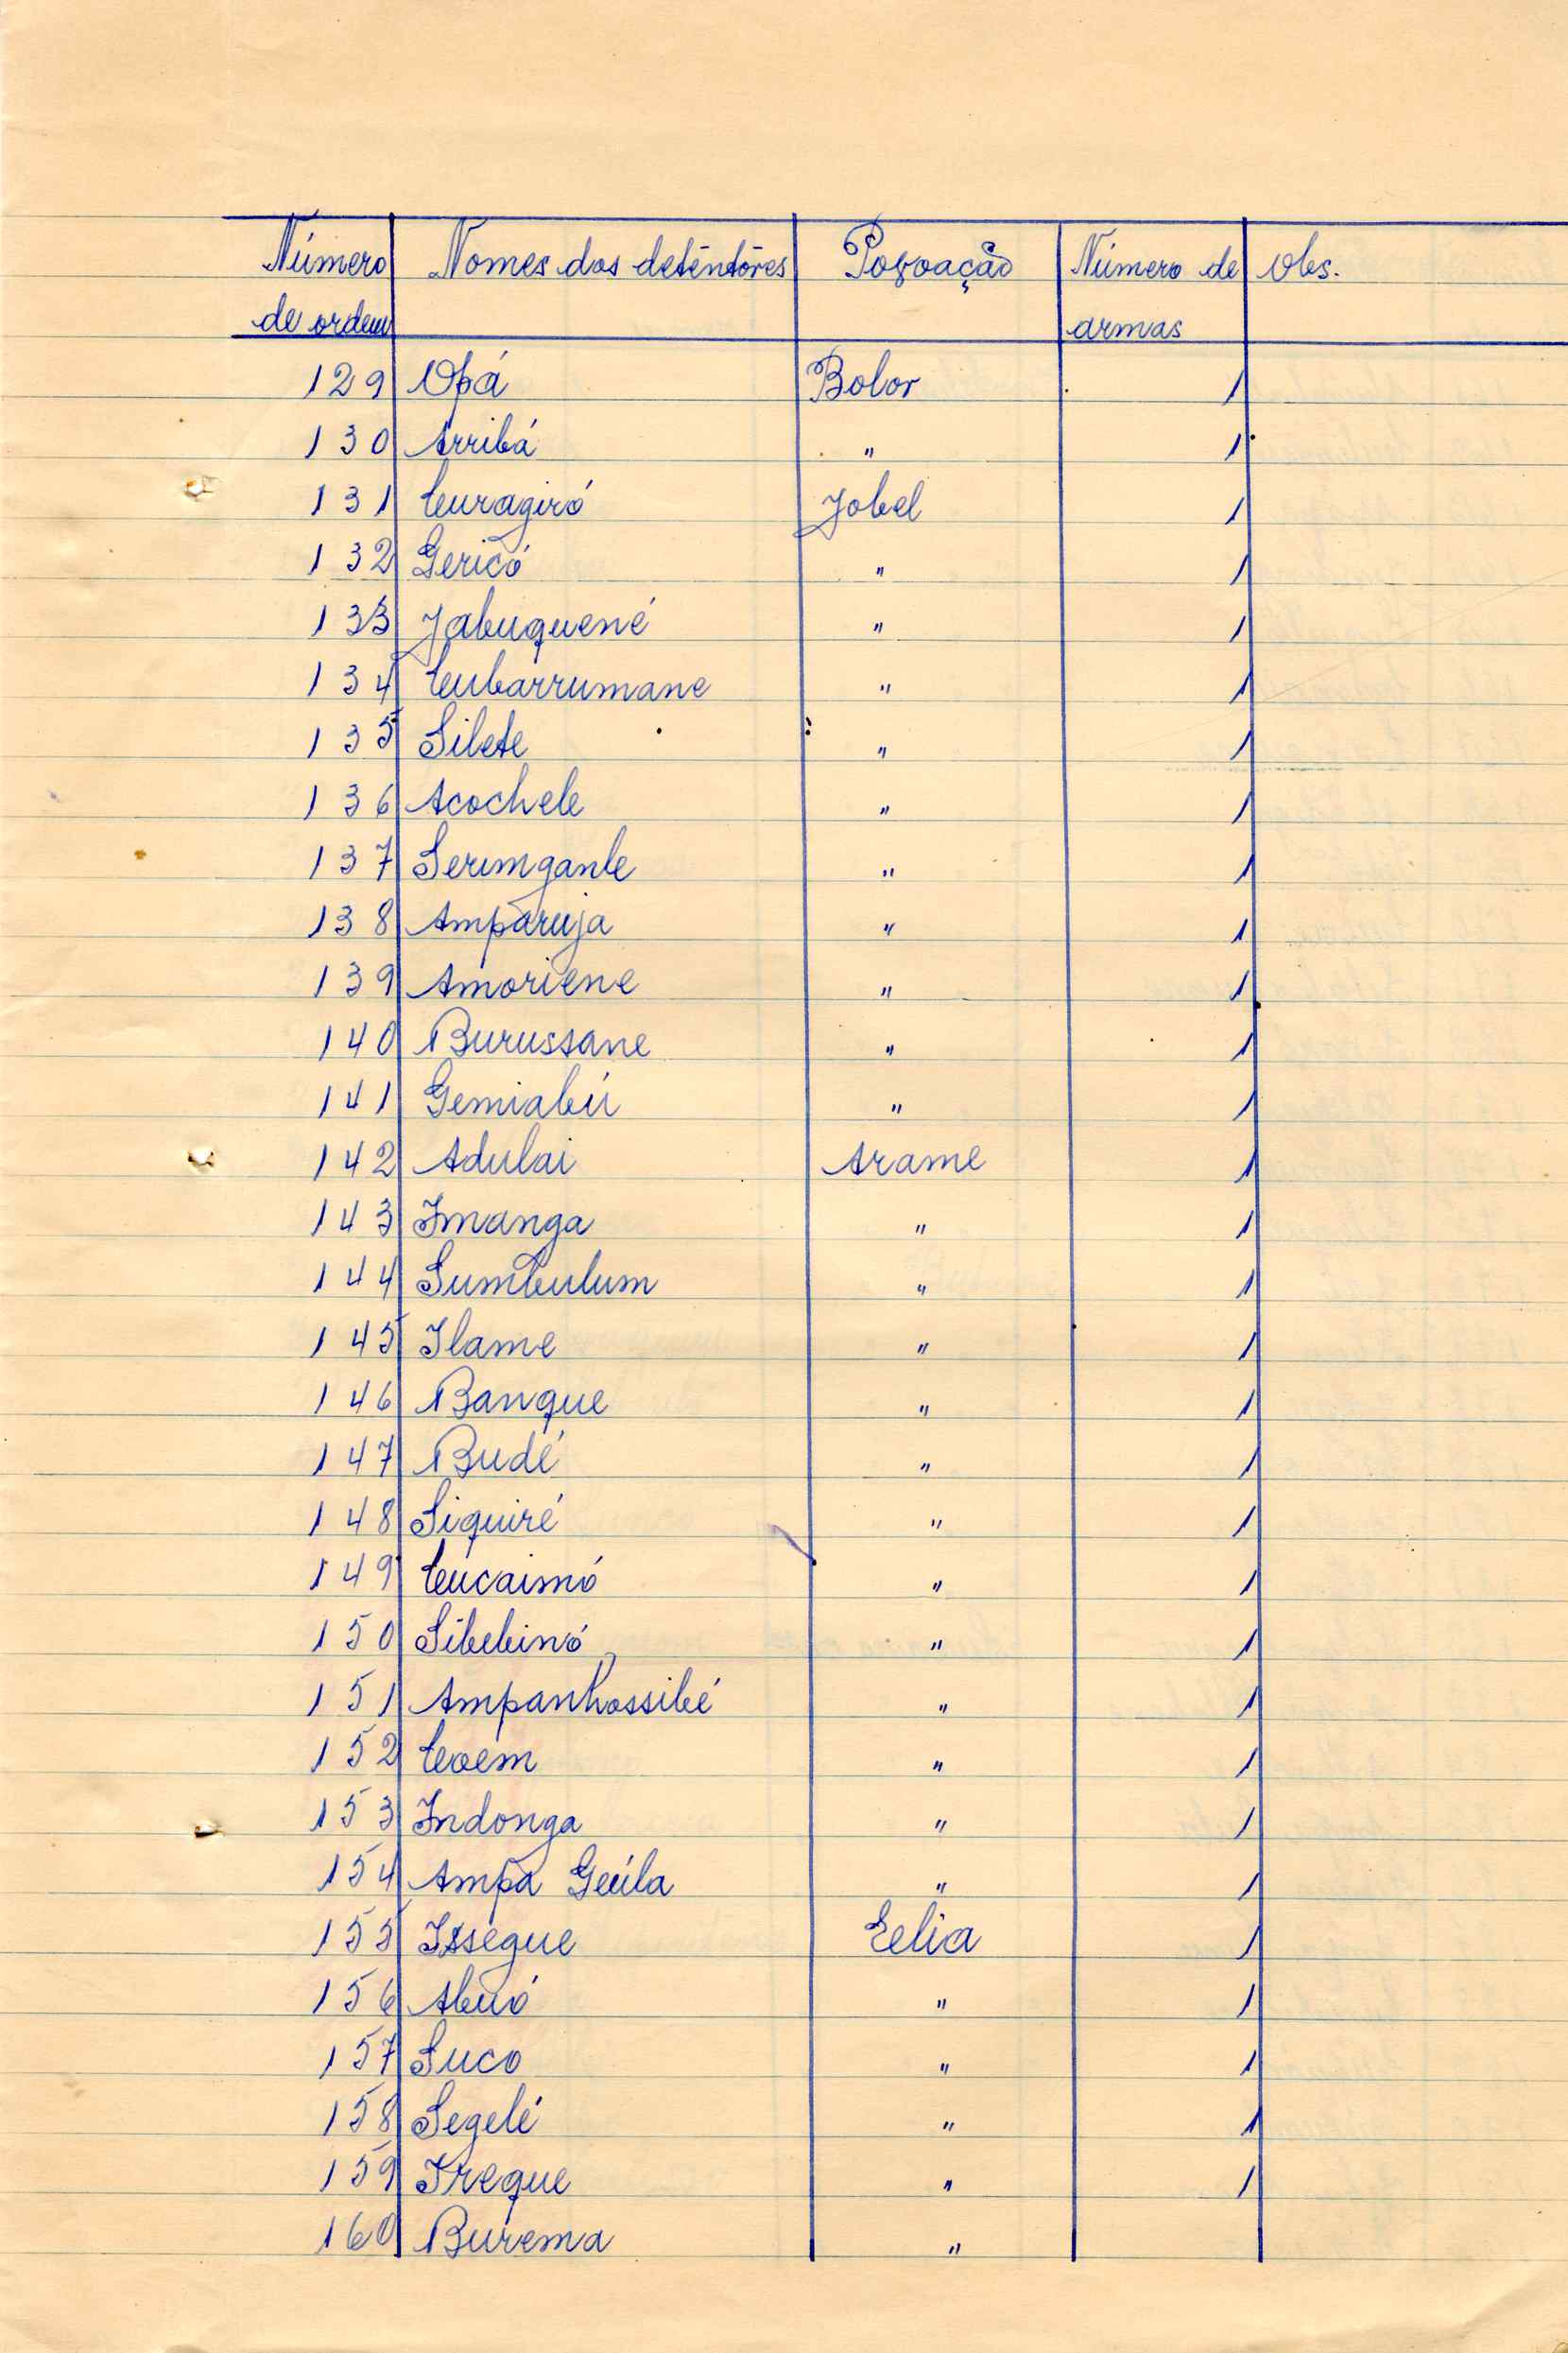 Número Nomes dos detentôres Povoação Número de Obs.
de ordem armas
129 Opá Bolor 1
130 Arribá " 1
131 Curagiró Jobel 1
132 Gericó " 1
133 Jabuquené " 1
134 Cubarrumane " 1
135 Silete " 1
136 Acochele " 1
137 Serimganbe " 1
138 Amparuja " 1
139 Amoriene " 1
140 Burussane " 1
141 Gemiabú " 1
142 Adulai Arame 1
143 Imanga " 1
144 Sumbulum " 1
145 Ilame " 1
146 Banque " 1
147 Budé " 1
148 Siquiré " 1
149 Cucaimó " 1
150 Sibebinó " 1
151 Ampanhossibé " 1
152 Coem " 1
153 Indonga " 1
154 Ampa Geúla " 1
155 Issegue Eelia 1
156 Abuó " 1
157 Suco " 1
158 Segelé " 1
159 Ireque " 1
160 Burema "